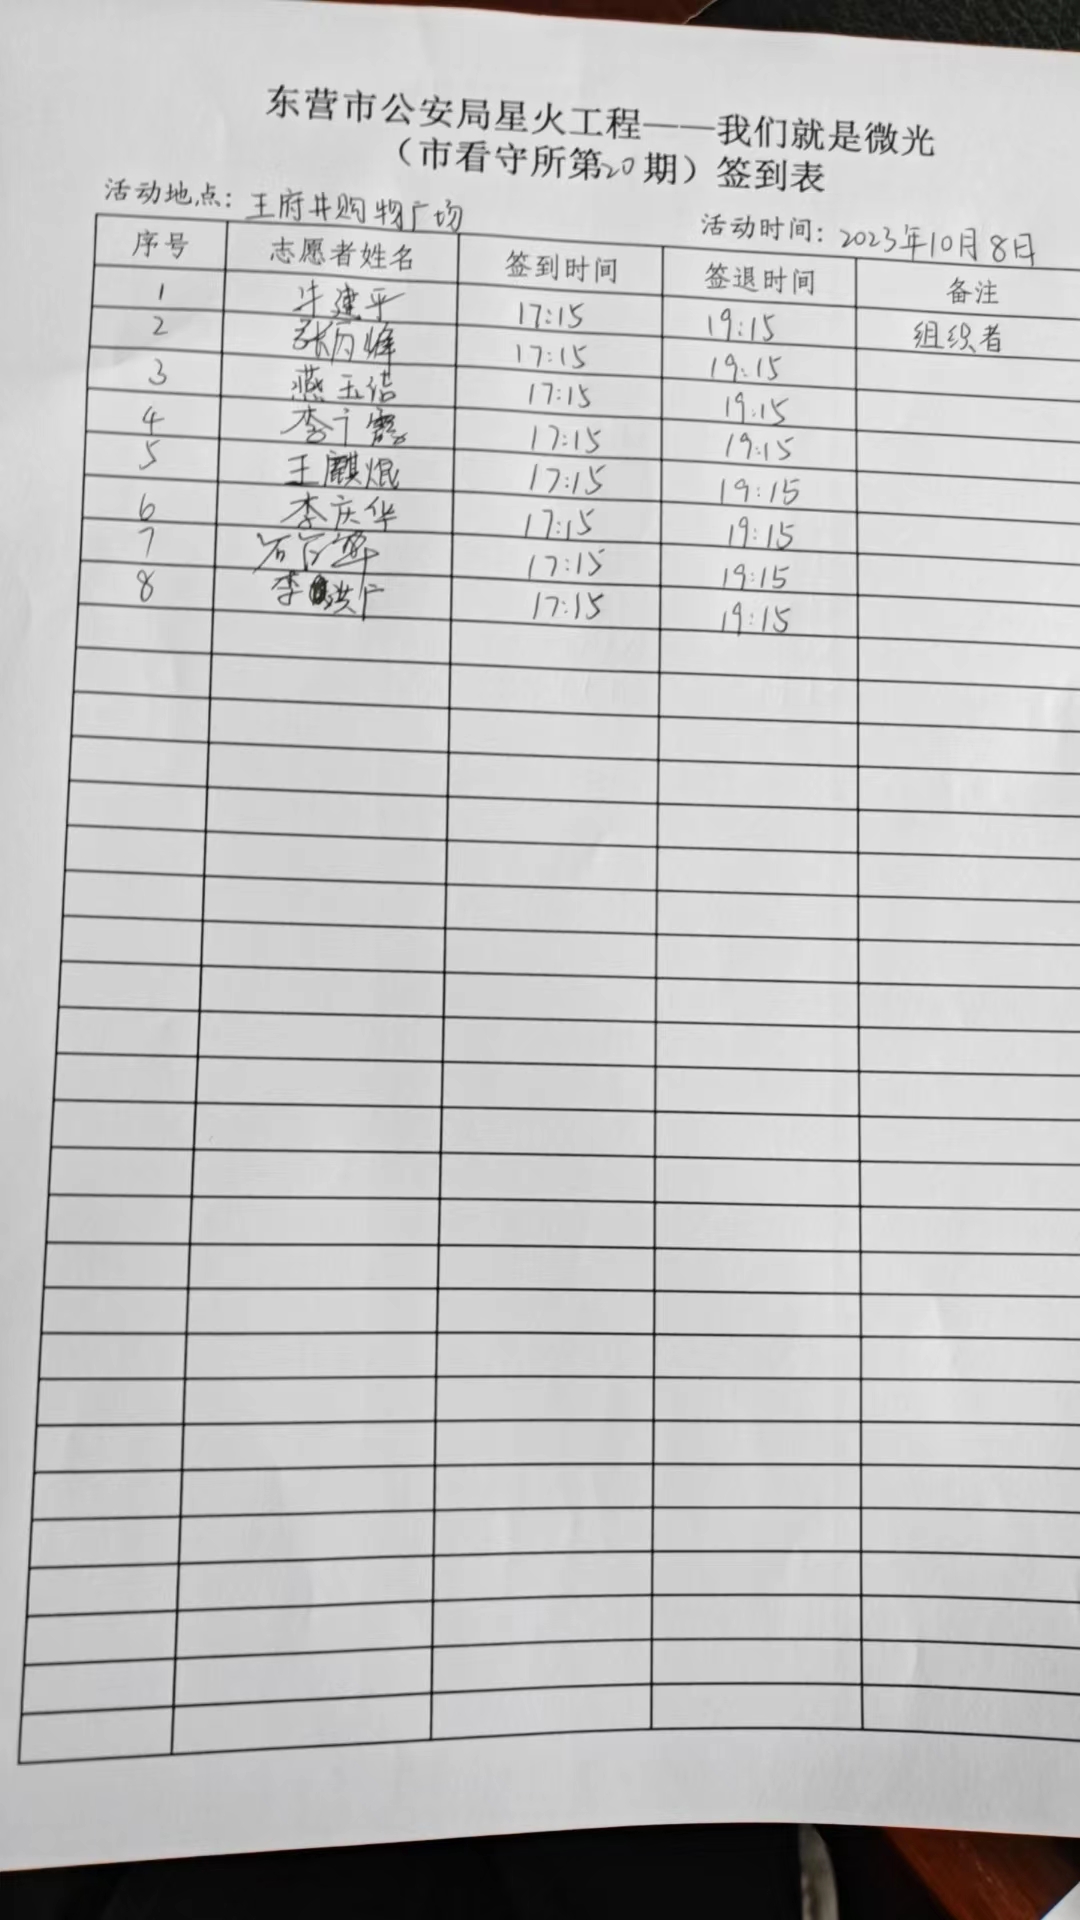 东营市公安局星火工程——我们就是微光
（市看守所第20期）签到表
活动地点：王府井购物广场 活动时间：2023年10月8日
序号 志愿者姓名 签到时间 签退时间 备注
1 牛建平 17:15 19:15 组织者
2 张 17:15 19:15
3 燕玉洁 17:15 19:15
4 李 17:15 19:15
5 王麒焜 17:15 19:15
6 李庆华 17:15 19:15
7 17:15 19:15
8 李洪广 17:15 19:15